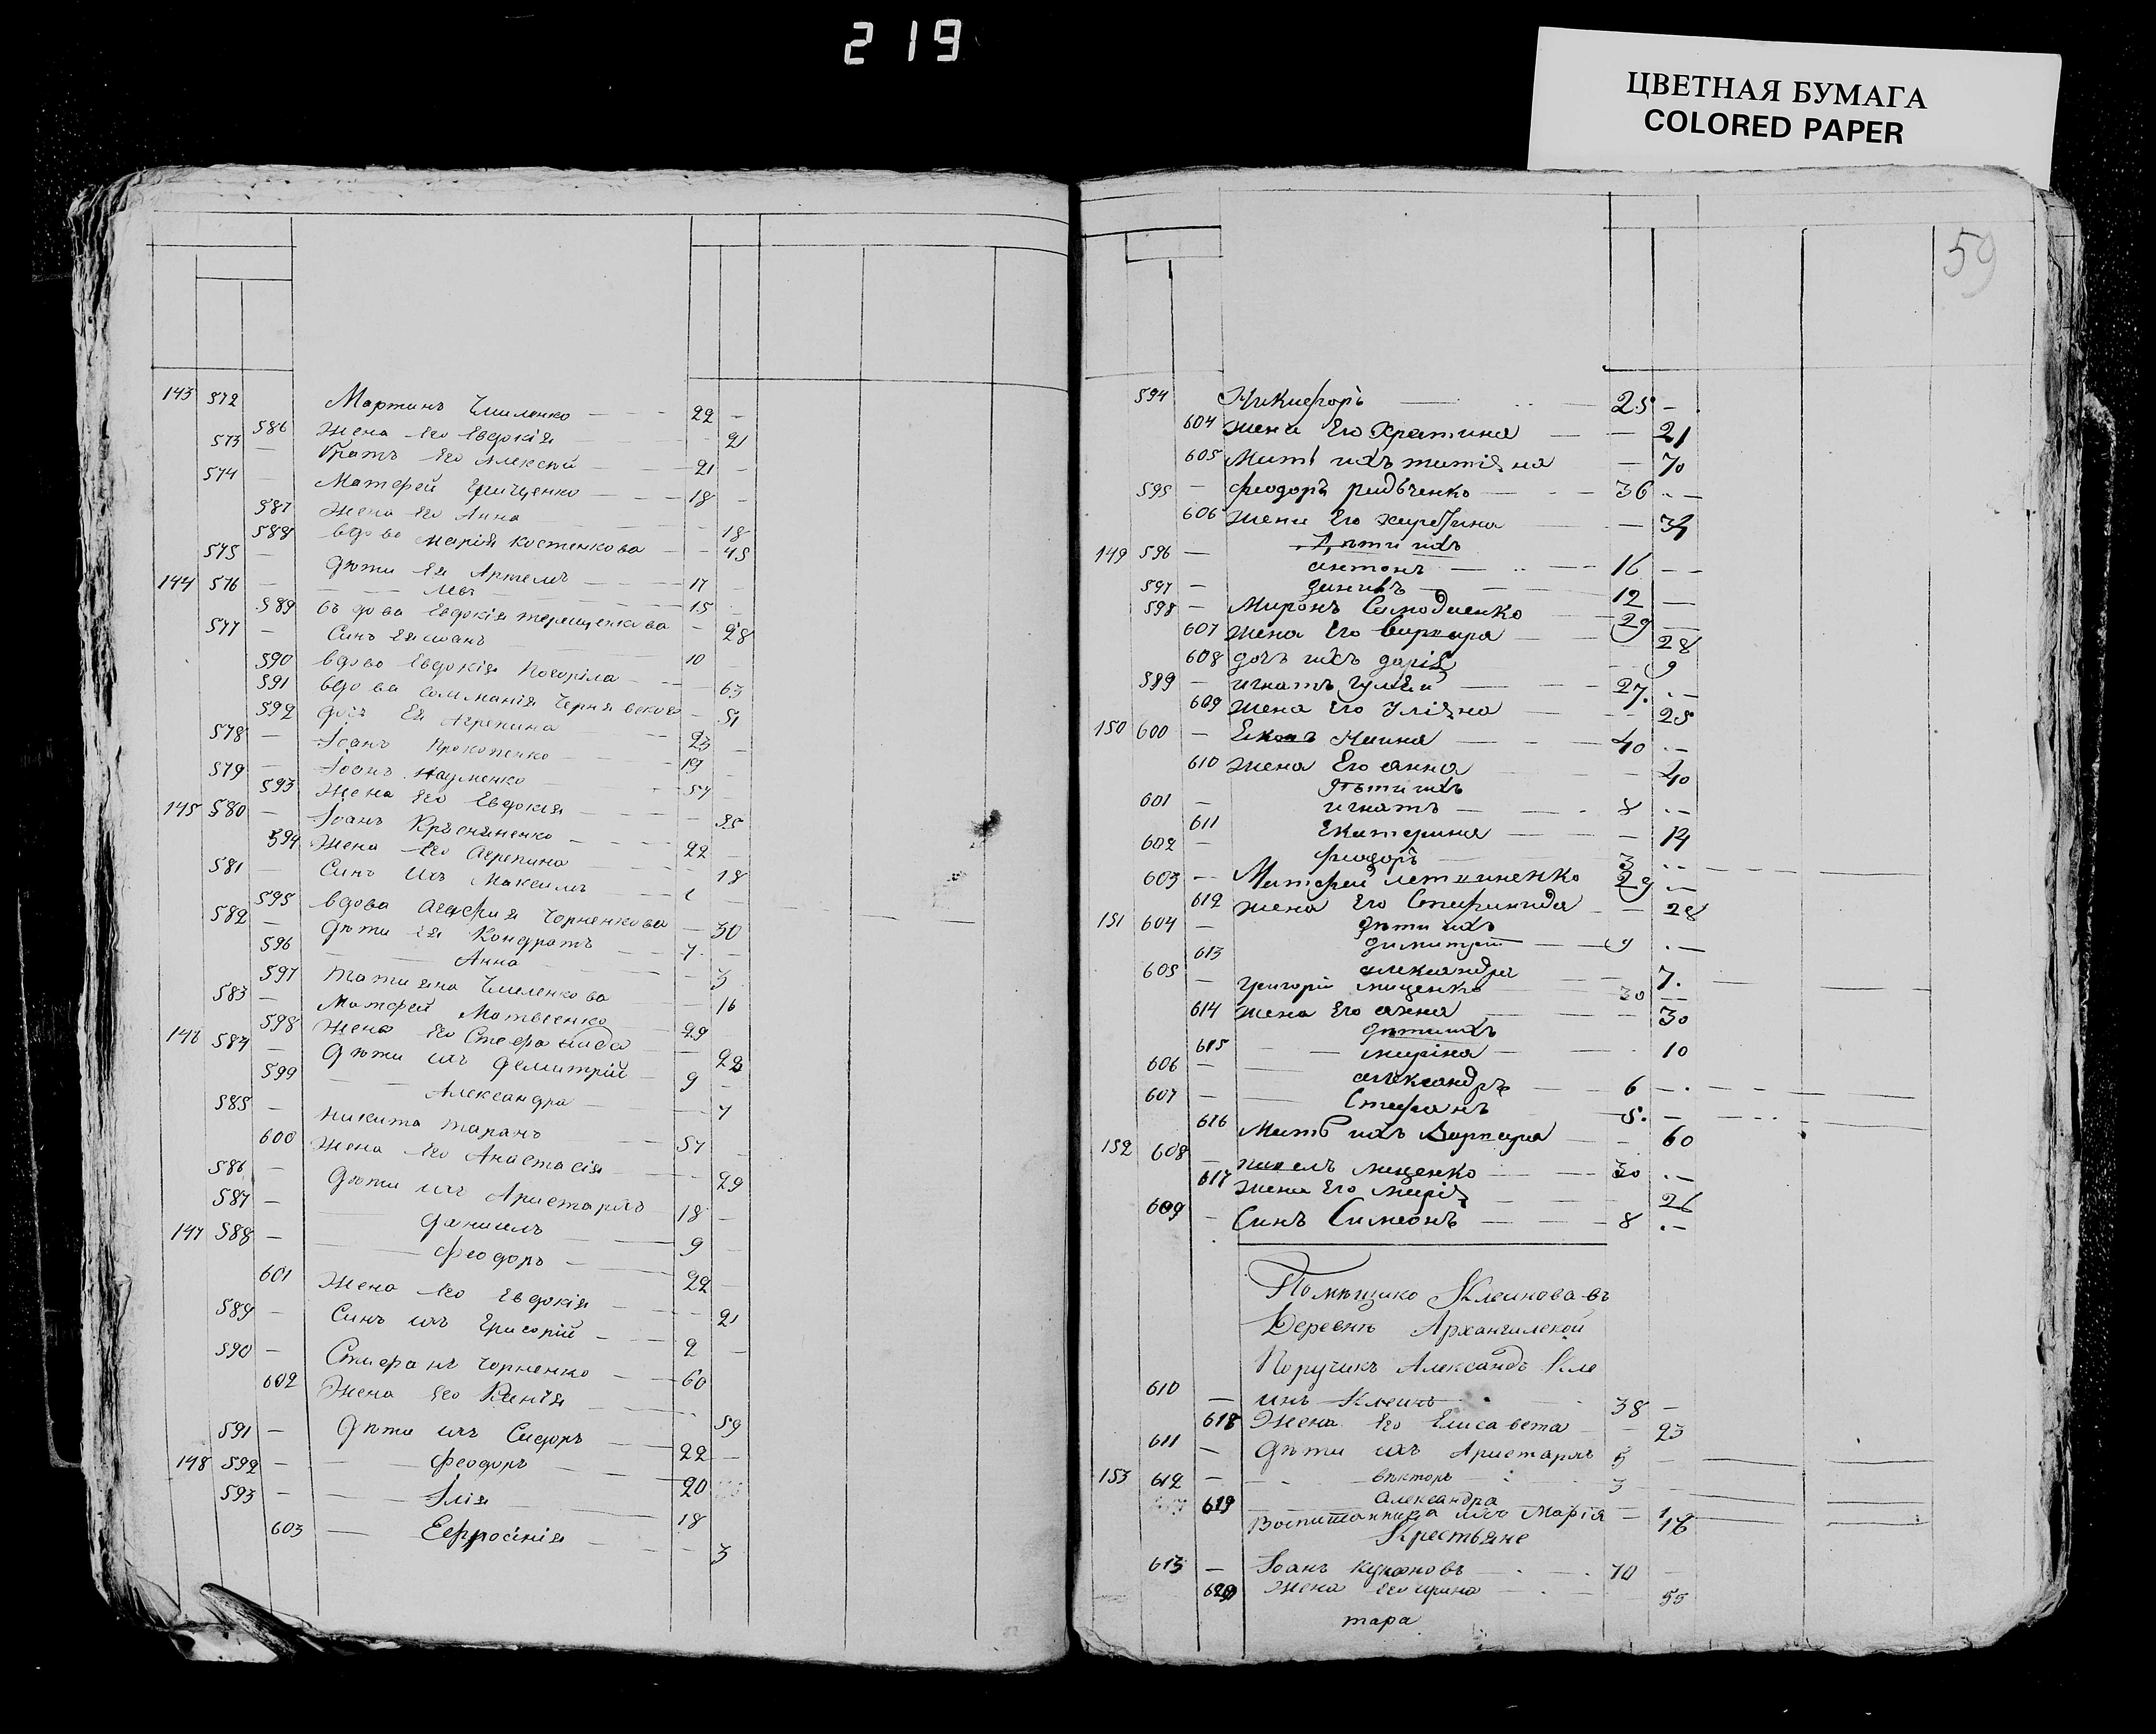 219
ЦВЕТНАЯ БУМАГА
COLORED PAPER
143 572 Мартинъ Чмиленко — - 22 -
586 Жена Его Евдокія — 21
573 Братъ Его Алексій — 21 -
574 Матфей Грищенко — 18 -
587 Жена Его Анна — 18
588 вдова Марія Костенкова — 45
575 — дѣти Ея Артемъ — 17
144 576 — Левъ — 15
589 вдова Евдокія терещенкова — 28
577 — Синъ Ея иоанъ — 10
590 вдова Евдокія Погоріла — 63
591 вдова Соломанія Чернявская — 51
592 дочъ Ея Агрепина — 23
578 — Іоанъ Прокопенко — 19
579 — Іоанъ Науменко — 54
593 Жена Его Евдокія — 35
145 580 — Іоанъ — 22
594 Жена Его Агрепина — 18
581 — Синъ Ихъ Максимъ —
595 вдова Агафия Чорненкова — 30
582 — дѣти Ея Кондратъ — 7
596 Анна — 3
597 Татияна Чмиленкова — 16
583 — Матфей Матвіенко — 29
598 Жена Его Стефанида — 22
146 584 — дѣти ихъ Демитрій — 9
599 Александра — 7
585 — Никита таранъ — 57
600 Жена Его Анастасія — 29
586 — дѣти ихъ Аристархъ — 18
587 — Даниилъ — 9
147 588 — Феодоръ — 22
601 Жена Его Евдокія — 21
589 — Синъ ихъ Григорій — 2
590 — Стефанъ Чорненко — 60
602 Жена Его Ксенія — 59
591 — дѣти ихъ Сидоръ — 22
148 592 — Феодоръ — 20
593 — Илія — 18
603 — Ефросинія — 3
59
594 Никифоръ — 25 -
604 жена Его Христина — 21
605 Мать ихъ татіяна — 70
595 — феодоръ радченко — 36
606 жена Его — 34
дѣти ихъ
149 596 — антонъ — 16
597 — данилъ — 12
598 — Миронъ Самодиенко — 29
607 жена Его Варвара — 28
608 дочъ ихъ дарія — 9
589 — игнатъ гулей — 27
609 жена Его Уліяна — 25
150 600 — — 40
610 жена Его анна — 40
дѣти ихъ
601 — игнатъ — 8
611 Екатерина — 14
602 — феодоръ — 3
603 — Матфей — 29
612 жена Его Стефанида — 28
дѣти ихъ
151 604 — димитрій — 9
613 александра — 7.
605 — григорій мищенко — 30
614 жена Его анна — 30
дѣти ихъ
615 маріна — 10
606 — александръ — 6
607 — Стефанъ — 5.
616 Мать ихъ Варвара — 60
152 608 — павелъ мищенко — 30
617 жена Его марія — 26
609 — Синъ Симеонъ — 8
Помѣщико Клеинова въ
Деревнѣ Архангилской
Поручикъ Александъ Кле
610 — инъ Клеинъ 38 -
618 Жена Его Елисавета — 23
611 — дѣти ихъ Аристархъ 5
153 612 — викторъ 3
619 Александра
Воспитанница ихъ Марія — 16
Крестьяне
613 — Іоанъ — 70
620 Жена Его ирина — 55
тара